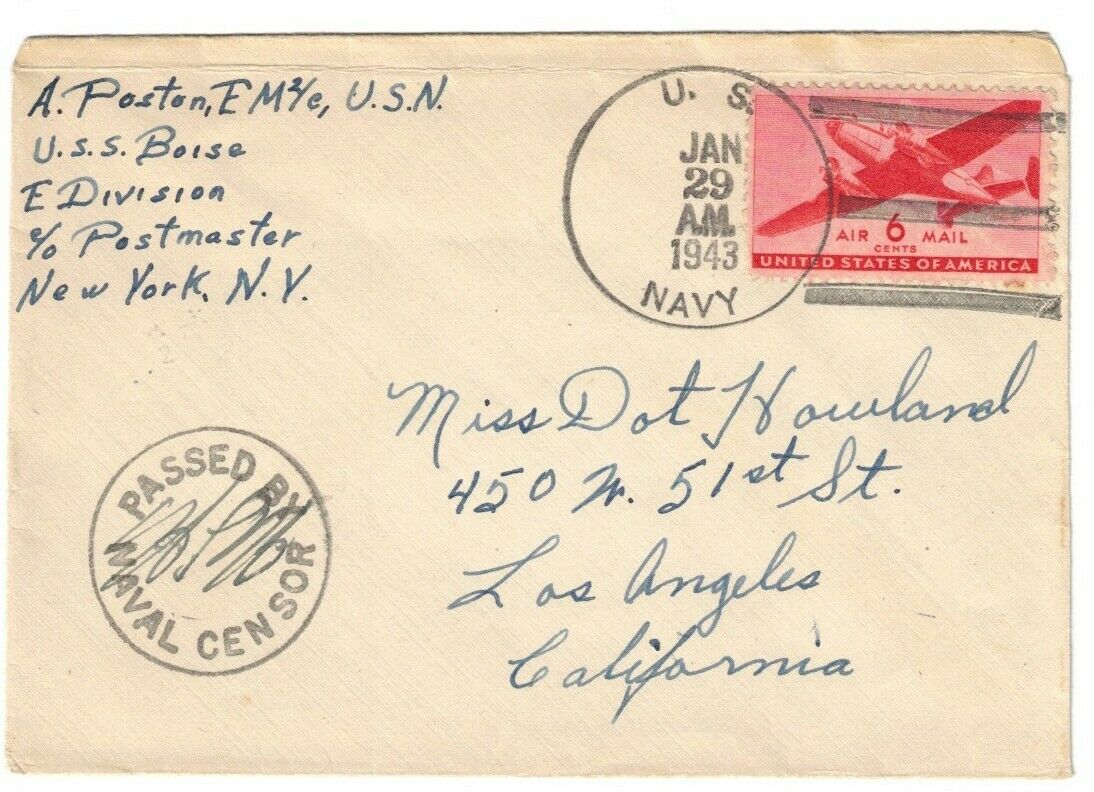 A. Poston, EM2/c, U.S.N.
U.S.S. Boise
E Division
c/o Postmaster
New York, N.Y.
U. S.
JAN
29
A.M.
1943
NAVY
AIR 6 MAIL
CENTS
UNITED STATES OF AMERICA
Miss Dot Howland
450 W. 51st St.
Los Angeles
California
PASSED BY
NAVAL CENSOR